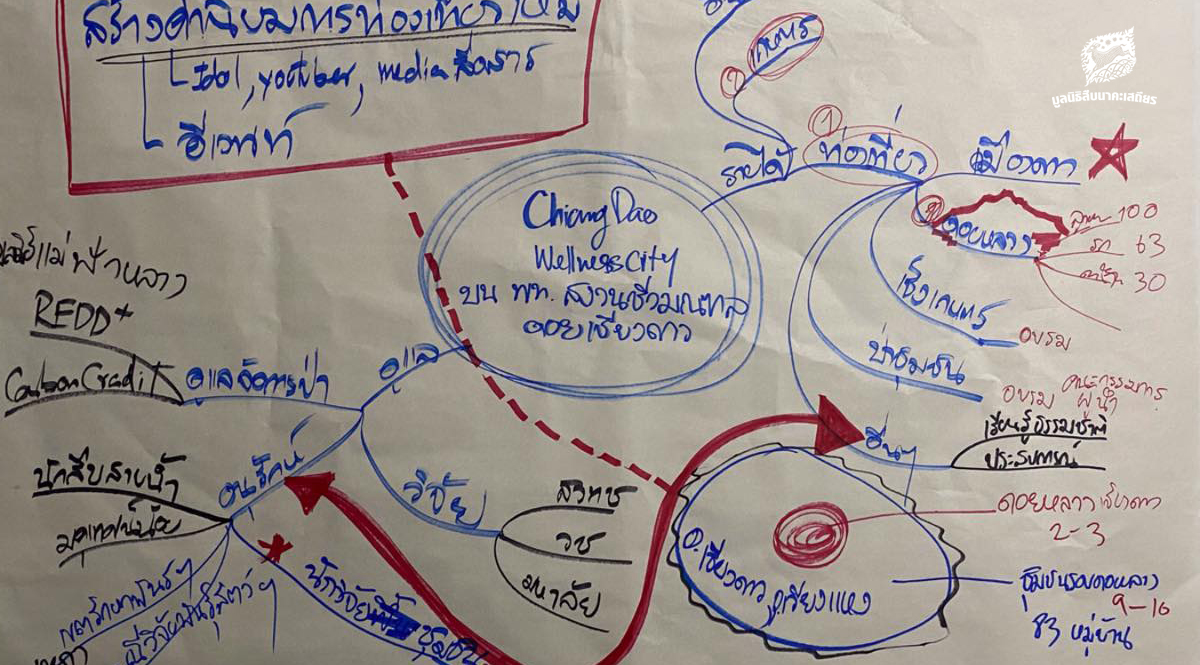 สร้างค่านิยมการท่องเที่ยวใหม่
Idol, youtuber, media สื่อสาร
อีเวนท์
มูลนิธิสืบนาคะเสถียร
Chiang Dao
Wellness City
บน พท. สงวนชีวมณฑล
ดอยเชียงดาว
รายได้
② เกษตร
①
ท่องเที่ยว
เมืองดาว
ดอยหลวง
100
รถ 63
30
เชิงเกษตร
อบรม
ป่าชุมชน
อบรม คณะกรรมการ
ผู้นำ
อื่นๆ
เรียนรู้ธรรมชาติ
ประสบการณ์
ดูแล
ดูแลจัดการป่า
แม่ฟ้าหลวง
REDD+
Carbon Credit
อนุรักษ์
นักสืบสายน้ำ
วิจัย
สวทช
วช
มหาลัย
นักวิจัย ชุมชน
อ.เชียงดาว, เวียงแหง
ดอยหลวงเชียงดาว
2-3
ชุมชนรอบดอยหลวง
9-10
83 หมู่บ้าน